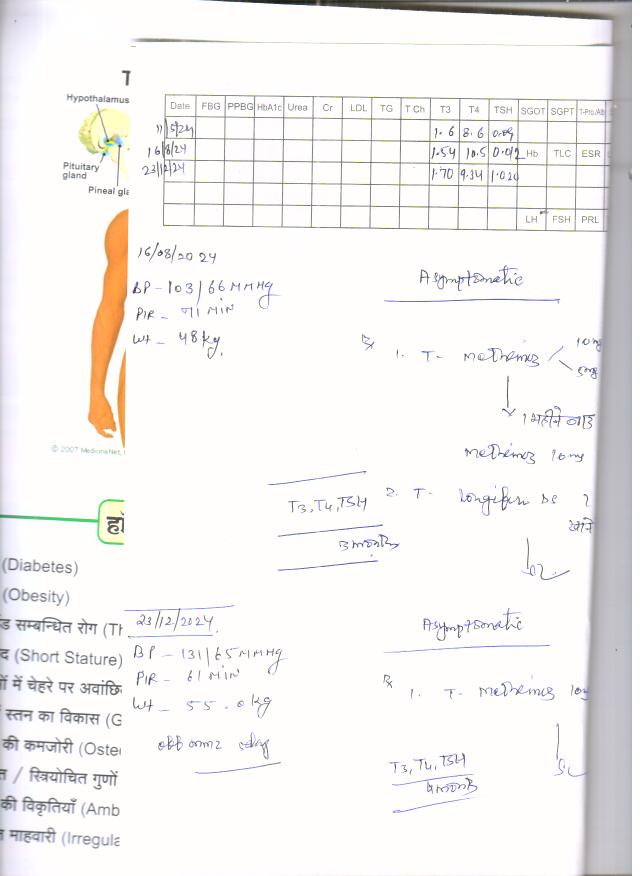 Hypothalamus
Pituitary
gland
Pineal gla
© 2007 MedicineNet, I
Date FBG PPBG HbA1c Urea Cr LDL TG T Ch T3 T4 TSH SGOT SGPT T-Pro./Alb
11/5/24 1.6 8.6 0.09
16/8/24 1.54 10.5 0.012 Hb TLC ESR
23/12/24 1.70 9.34 1.020
LH FSH PRL
16/08/2024
BP - 103/66 MMHg
P/R - 71 MIN
Wt - 48 kg.
Asymptomatic
Rx 1. T- Methimez 10 mg
5mg
1 महीने बाद
Methimez 10 mg
T3, T4, TSH
3 months
2. T-
23/12/2024.
BP - 131/65 MMHg
P/R - 61 MIN
Wt - 55.0 kg
Asymptomatic
Rx 1. T- Methimez 10
T3, T4, TSH
हो
(Diabetes)
(Obesity)
ड सम्बन्धित रोग (Th
द (Short Stature)
ों में चेहरे पर अवांछि
स्तन का विकास (G
की कमजोरी (Oste
त / स्त्रियोचित गुणों
की विकृतियाँ (Amb
त माहवारी (Irregula